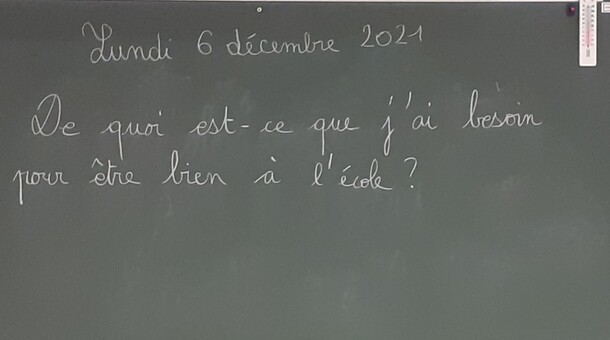 Lundi 6 décembre 2021
De quoi est-ce que j'ai besoin
pour être bien à l'école ?